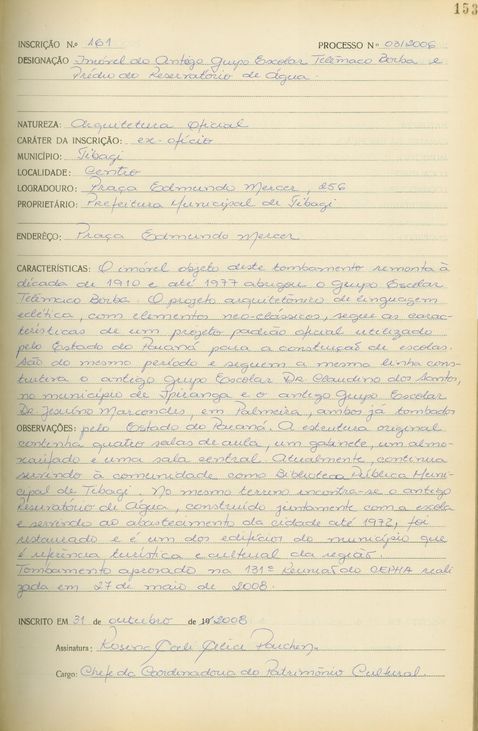 153
INSCRIÇÃO N.o 161 PROCESSO No 03/2006
DESIGNAÇÃO Imóvel do Antigo Grupo Escolar Telêmaco Borba e
Prédio do Reservatório de Água.
NATUREZA: Arquitetura Oficial
CARÁTER DA INSCRIÇÃO: ex-ofício
MUNICÍPIO: Tibagi
LOCALIDADE: Centro
LOGRADOURO: Praça Edmundo Mercer, 256
PROPRIETÁRIO: Prefeitura Municipal de Tibagi
ENDERÊÇO: Praça Edmundo Mercer
CARACTERÍSTICAS: O imóvel objeto deste tombamento remonta à
década de 1910 e até 1977 abrigou o Grupo Escolar
Telêmaco Borba. O projeto arquitetônico de linguagem
eclética, com elementos neo-clássicos, segue as carac-
terísticas de um projeto padrão oficial utilizado
pelo Estado do Paraná para a construção de escolas.
São do mesmo período e seguem a mesma linha cons-
trutiva o antigo Grupo Escolar Dr. Claudino dos Santos,
no município de Ipiranga e o antigo Grupo Escolar
Dr. Jesuíno Marcondes, em Palmeira, ambos já tombados
OBSERVAÇÕES: pelo Estado do Paraná. A estrutura original
continha quatro salas de aula, um gabinete, um almo-
xarifado e uma sala central. Atualmente, continua
servindo à comunidade como Biblioteca Pública Muni-
cipal de Tibagi. No mesmo terreno encontra-se o antigo
Reservatório de Água, construído juntamente com a escola
e servindo ao abastecimento da cidade até 1972, foi
restaurado e é um dos edifícios do município que
é referência turística e cultural da região.
Tombamento aprovado na 131ª Reunião do CEPHA reali
zada em 27 de maio de 2008.
INSCRITO EM 31 de outubro de 19/2008
Assinatura: Rosina
Cargo: Chefe da Coordenadoria do Patrimônio Cultural.